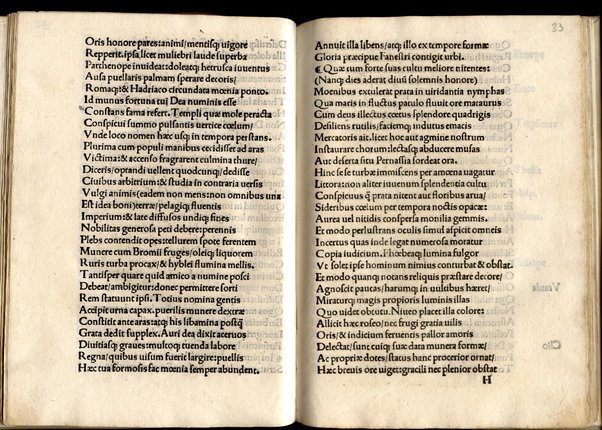 Oris honore pares: animi/ mentisq; uigore
Repperit. ipsa licet muliebri laude superba
Parthenope inuideat: doleatq; hetrusca iuuentus
Ausa puellaris palmam sperare decoris/
Romaq;: & Hadriaco circundata mœnia ponto.
Id munus fortuna tui Dea numinis esse
Constans fama refert. Templi quæ mole peracta
Conspicui summo pulsantis uertice cœlum/
Vnde loco nomen hæc usq; in tempora perstans.
Plurima cum populi manibus cecidisset ad aras
Victima: & accenso fragrarent culmina thure/
Diceris/ optandi uellent quodcunq; / dedisse
Ciuibus arbitrium: & studia in contraria uersis
Vulgi animis (eadem non mens: non omnibus una
Est idea boni) terræ/ pelagiq; fluentis
Imperium: & late diffusos undiq; fines
Nobilitas generosa peti debere: perennis
Plebs contendit opes: tellurem sponte ferentem
Munere cum Bromii fruges/ oleiq; liquorem
Ruris turba procax/ & hyblei flumina mellis.
Tantisper quare quid amico a numine posci
Debeat/ ambigitur: donec permittere sorti
Rem statuunt ipsi. Totius nomina gentis
Accipit urna capax. puerilis munere dextræ
Constitit ante aras: atq; his libamina postq̃
Grata dedit supplex. Auri dea dixit aceruos
Diuitiasq; graues: multoq; tuenda labore
Regna/ quibus uisum fuerit largire: puellis
Hæc tua formosis fac mœnia semper abundent.
33
Annuit illa libens/ atq; illo ex tempore formæ
Gloria præcipue Fanestri contigit urbi.
Quæ cum forte suas cultu meliore niterent
(Nanq; dies aderat diuũ solemnis honore)
Moenibus exulerat prata in uiridantia nymphas
Qua maris in fluctus patulo fluuit ore mataurus
Cum deus illectus cœtus splendore quadrigis
Desiliens rutilis, faciemq; indutus emacis
Mercatoris ait. licet hoc aut agmine nostrum
Instaurare chorum: lectasq; abducere musas
Aut deserta situ Pernassia sordeat ora.
Hinc se se turbæ immiscens per amœna uagatur
Littora: non aliter iuuenum splendentia cultu
Conspicitus q̃ prata nitent aut floribus arua/
Sideribus cœlum per tempora noctis opacæ:
Aurea uel nitidis conspersa monilia gemmis.
Et modo perlustrans oculis simul aspicit omneis
Incertus quas inde legat numerosa moratur
Copia iudicium. Phœbeaq; lumina fulgor
Vt solet ipse hominum nimius conturbat & obstat.
Et modo quanq; notans reliquis præstare decore/
Agnoscit paucas/ harumq; in uultibus hæret/
Miraturq; magis propioris luminis illas
Quo uidet obtutu. Niueo placet illa colore:
Allicit hæc roseo/ nec frugi gratia uilis
Oris/ & indicium feruentis pallor amoris
Delectat/ sunt cuiq; suæ data munera formæ/
Ac propriæ dotes/ status hanc procerior ornat/
Hæc breuis ore uiget: gracili nec plenior obstat
H
Vrania
Clio